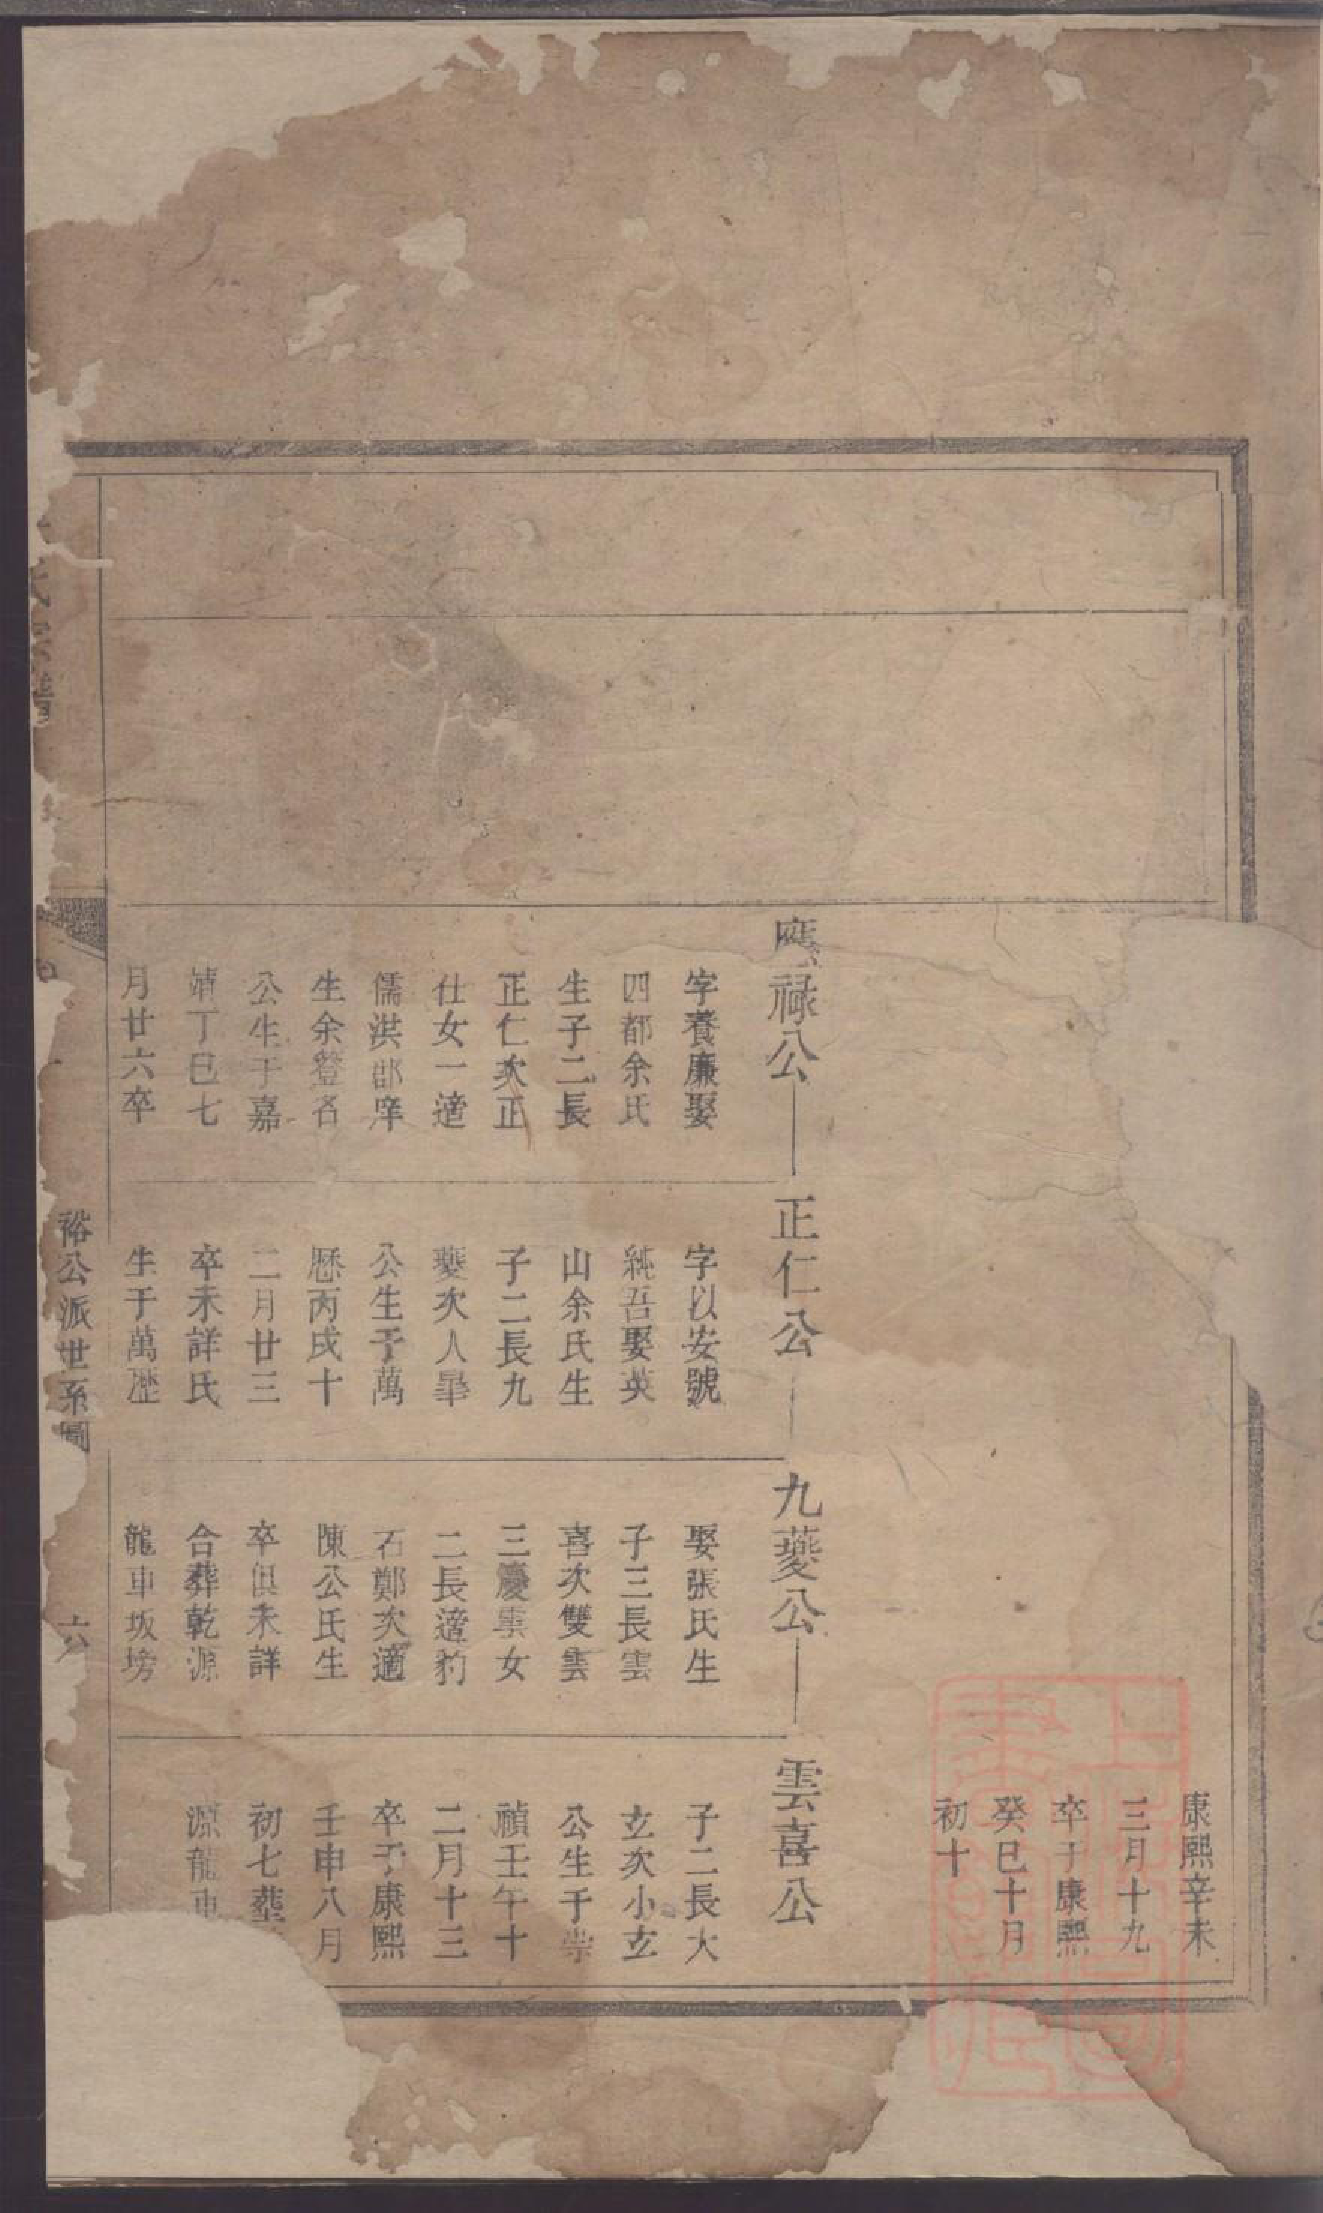 康熙辛未
三月十九
卒于康熙
癸巳十月
初十
應祿公
字養廉娶
四都余氏
生子二長
正仁次正
仕女一適
儒洪郡庠
生余登名
公生于嘉
靖丁巳七
月廿六卒
正仁公
字以安號
純吾娶英
山余氏生
子二長九
夔次人㚖
公生于萬
歷丙戌十
二月廿三
卒未詳氏
生于萬歷
九夔公
娶張氏生
子三長雲
喜次雙雲
三慶雲女
二長適豹
石鄭次適
陳公氏生
卒俱未詳
合葬乾源
龍車坂塝
雲喜公
子二長大
玄次小玄
公生于崇
禎壬午十
二月十三
卒于康熙
壬申八月
初七葬
源龍車
裕公派世系圖
六